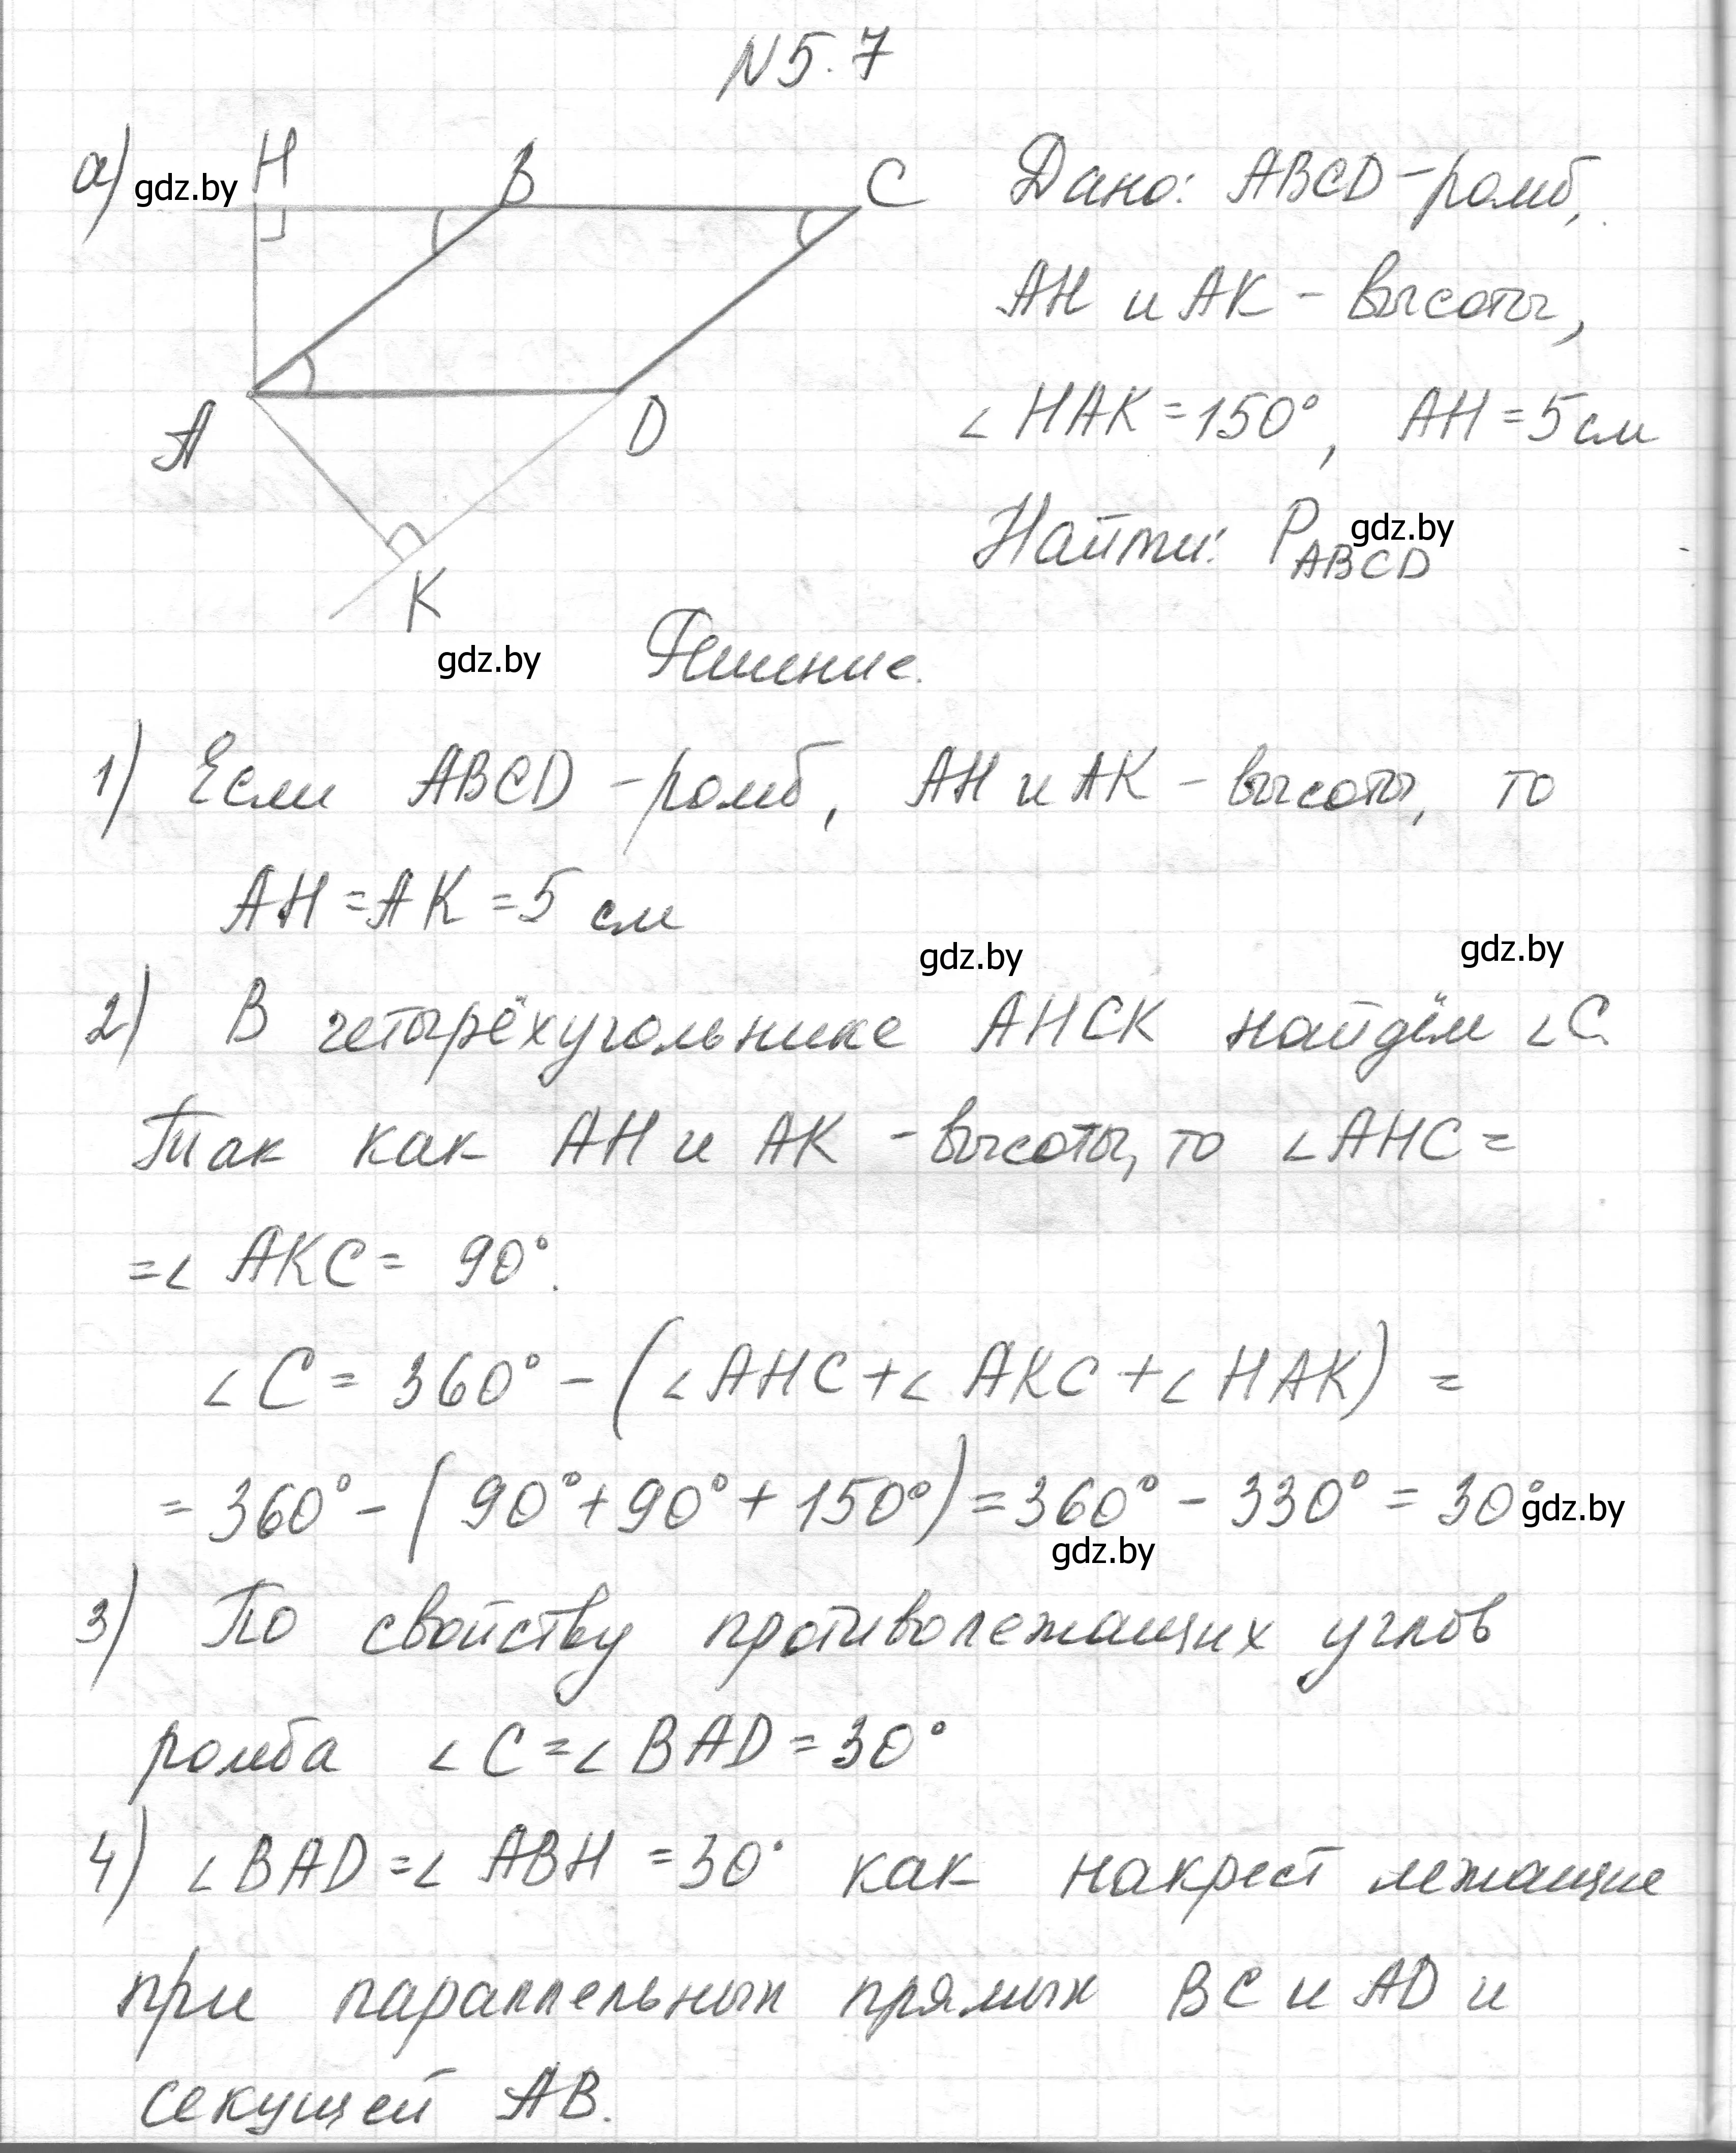 N5.7
а) gdz.by H B C
A D K
Дано: ABCD - ромб,
AH и AK - высоты,
∠HAK = 150°, AH = 5 см
Найти: P ABCD gdz.by
gdz.by Решение.
1) Если ABCD - ромб, AH и AK - высоты, то
AH = AK = 5 см
gdz.by gdz.by
2) В четырёхугольнике AHCK найдём ∠C.
Так как AH и AK - высоты, то ∠AHC =
= ∠AKC = 90°.
∠C = 360° - (∠AHC + ∠AKC + ∠HAK) =
= 360° - (90° + 90° + 150°) = 360° - 330° = 30° gdz.by
gdz.by
3) По свойству противолежащих углов
ромба ∠C = ∠BAD = 30°
4) ∠BAD = ∠ABH = 30° как накрест лежащие
при параллельных прямых BC и AD и
секущей AB.